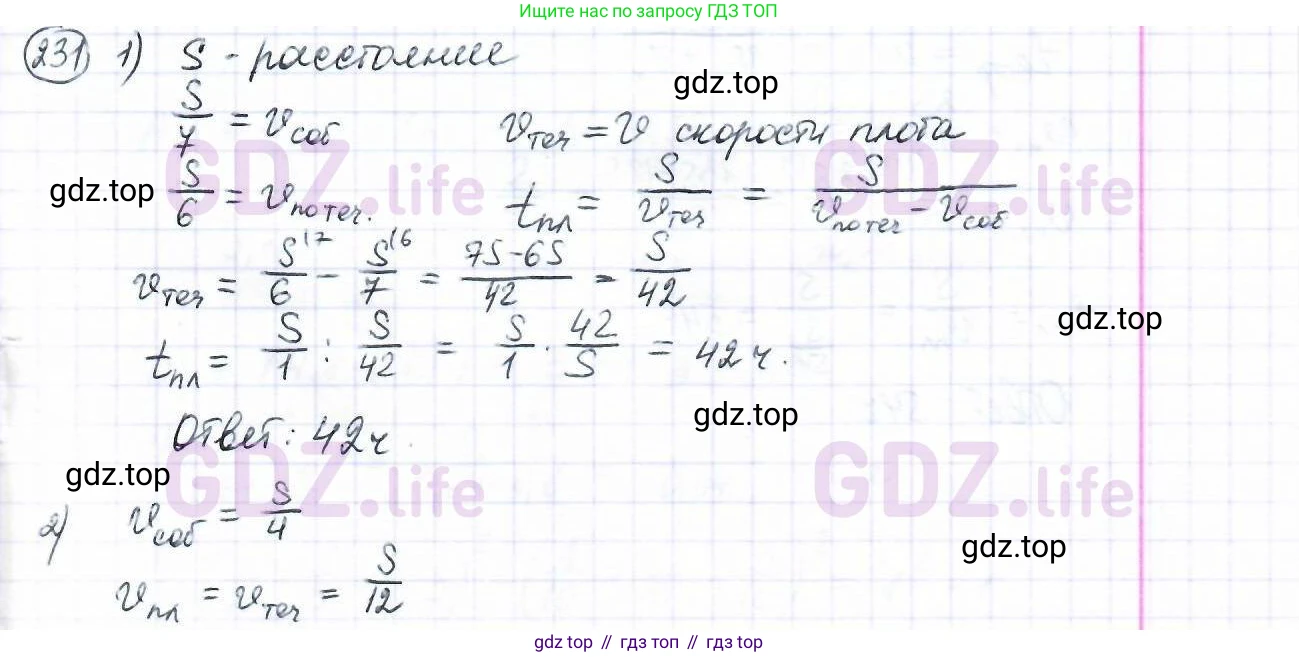 Ищите нас по запросу ГДЗ ТОП
231 1) S - расстояние
gdz.top
S/7 = v соб
v теч = v скорости плота
GDZ.life GDZ.life
gdz.top
S/6 = v по теч.
t пл = S/v теч = S/(v по теч - v соб)
v теч = S/6 ^17 - S/7 ^16 = (7S-6S)/42 = S/42
gdz.top
t пл = S/1 : S/42 = S/1 · 42/S = 42 ч.
gdz.top
Ответ: 42 ч.
gdz.top
GDZ.life GDZ.life
2) v соб = S/4
gdz.top
v пл = v теч = S/12
gdz top // гдз топ // гдз top